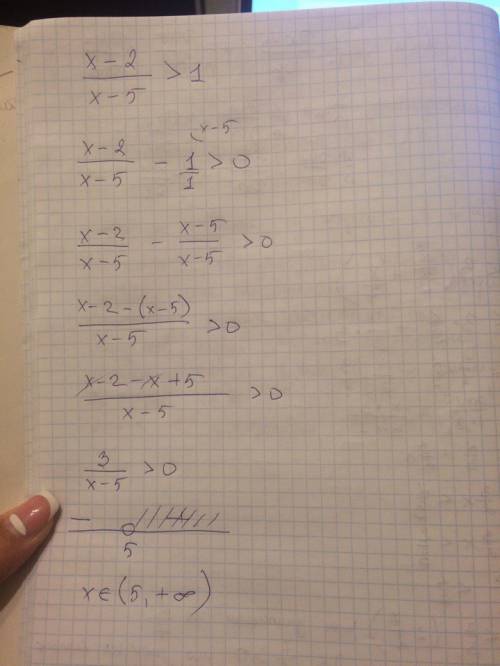 x-2 / x-5 > 1
x-2 / x-5 - 1 / 1 (x-5 > 0
x-2 / x-5 - x-5 / x-5 > 0
x-2-(x-5) / x-5 > 0
x-2-x+5 / x-5 > 0
3 / x-5 > 0
- +
5
x∈(5, +∞)